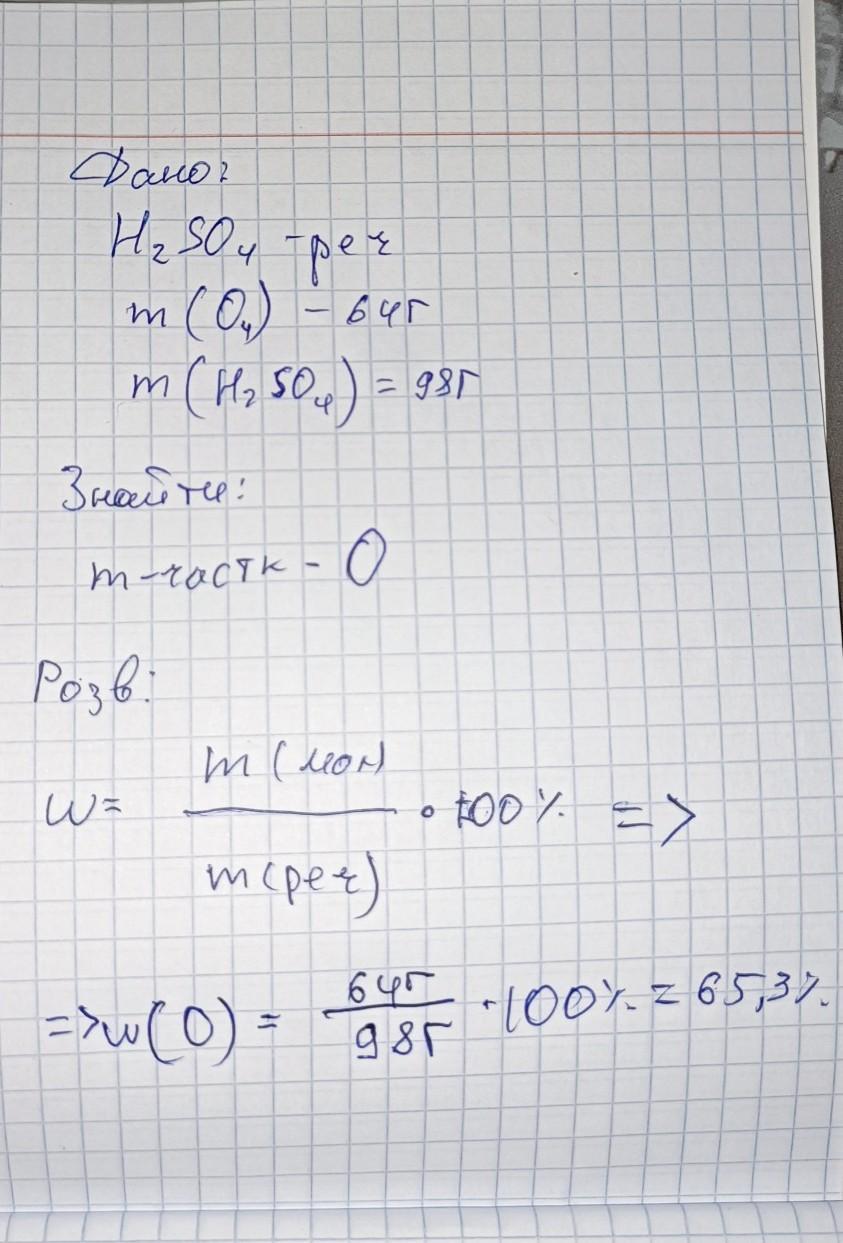 Дано:
H₂SO₄ - реч
m(O₄) - 64г
m(H₂SO₄) = 98г
Знайти:
m-частк - O
Розв:
W = m(мол) / m(реч) • 100% =>
=> w(O) = 64г / 98г · 100% = 65,3%.